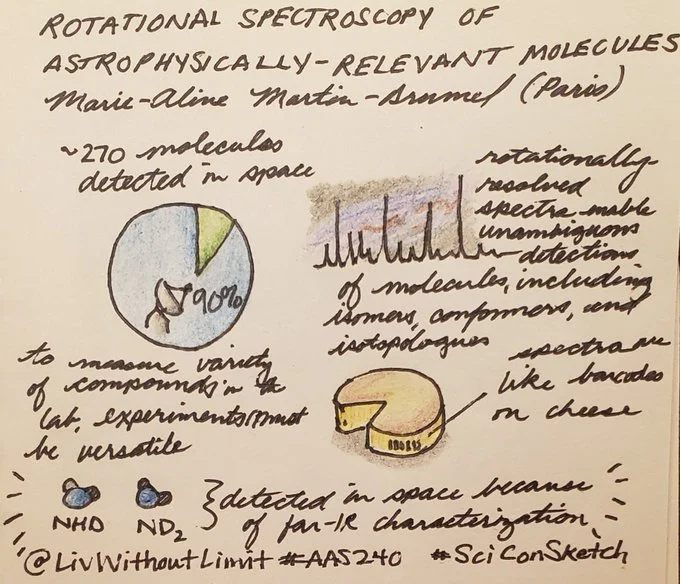 ROTATIONAL SPECTROSCOPY OF
ASTROPHYSICALLY-RELEVANT MOLECULES
Marie-Aline Martin-Drumel (Paris)
~270 molecules
detected in space
90%
rotationally
resolved
spectra enable
unambiguous
detections
of molecules, including
isomers, conformers, and
isotopologues
to measure variety
of compounds in the
lab, experiments must
be versatile
spectra are
like barcodes
on cheese
NHD ND₂
detected in space because
of far-IR characterization
@LivWithoutLimit #AAS240 #SciConSketch